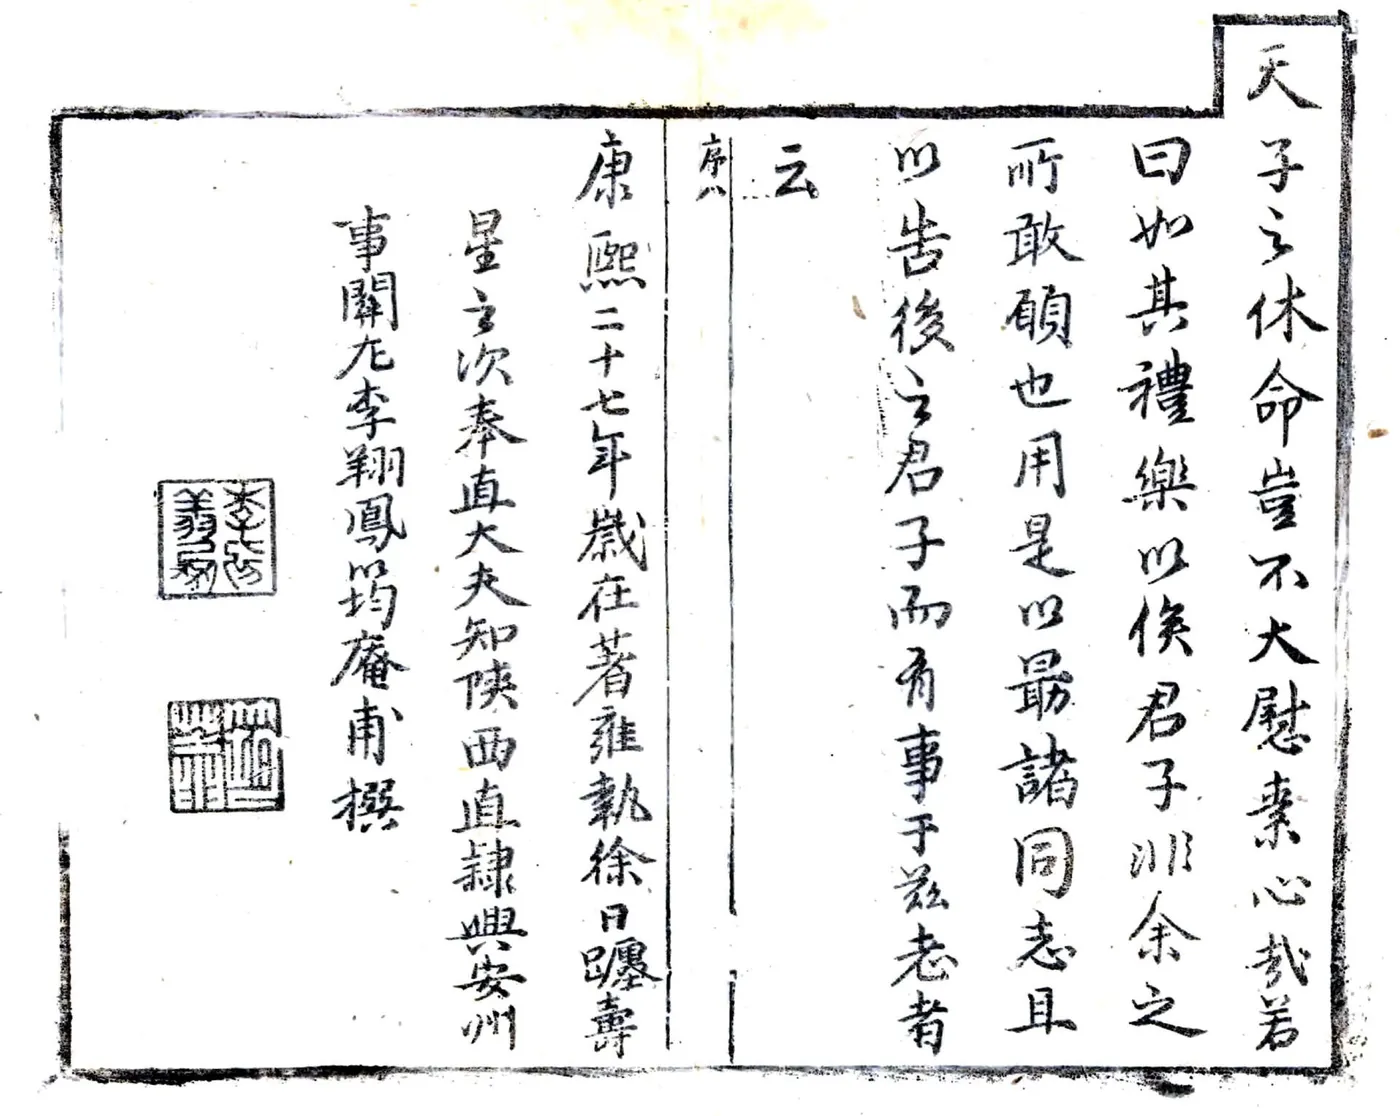 天子之休命豈不大慰素心哉若
曰如其禮樂以俟君子非余之
所敢願也用是以最諸同志且
以告後之君子而有事于茲老者
云
序八
康熙二十七年歲在著雍執徐日躔壽
星之次奉直大夫知陝西直隸興安州
事關左李翔鳳筠庵甫撰